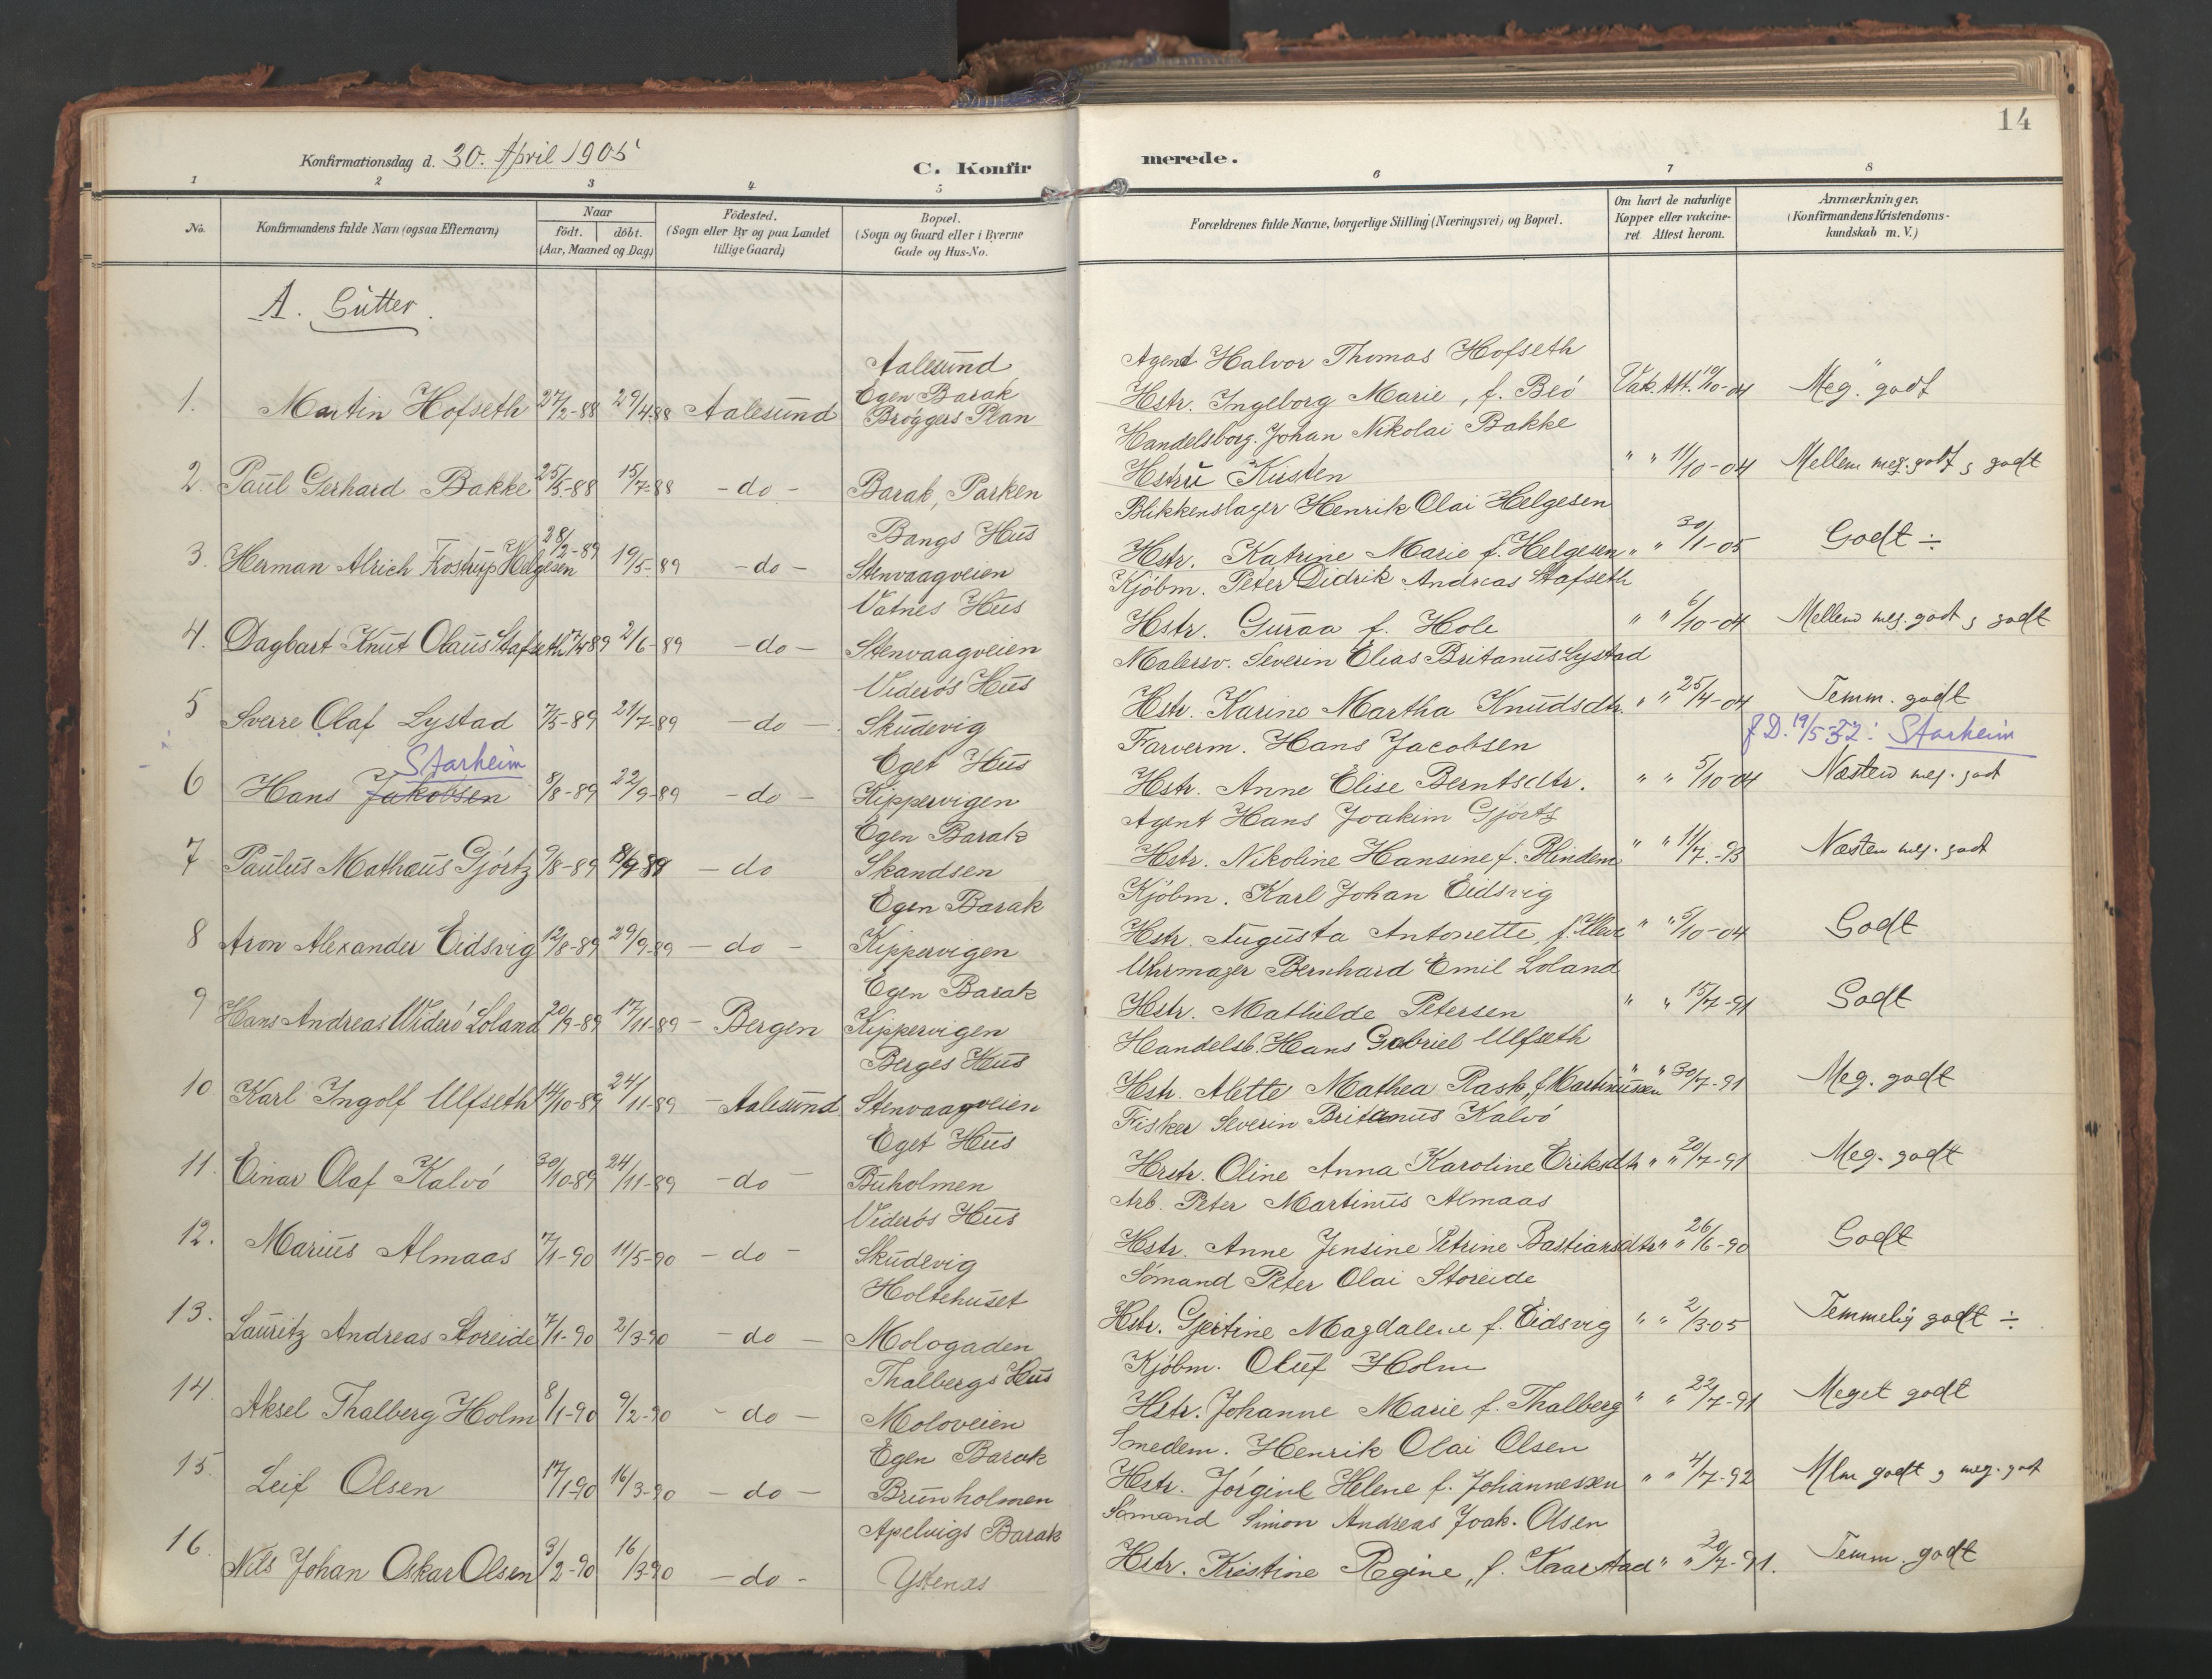 14
Konfirmationsdag d. 30. April 1905
C. Konfirmerede.
1 2 3 4 5 6 7 8
No. | Konfirmandens fulde Navn (ogsaa Efternavn) | Naar født. | døbt. (Aar, Maaned og Dag) | Födested. (Sogn eller By og paa Landet tillige Gaard) | Bopæl. (Sogn og Gaard eller i Byerne Gade og Hus-No. | Forældrenes fulde Navne, borgerlige Stilling (Næringsvei) og Bopæl. | Om havt de naturlige Kopper eller vakcineret Attest herom. | Anmærkninger. (Konfirmandens Kristendomskundskab m. V.)
A. Gutter.
Aalesund | Agent Halvor Thomas Hofseth
1. Martin Hofseth | 27/2-88 | 29/4-88 | Aalesund | Egen Barak Brøggers Plan | Hstr. Ingeborg Marie, f. Beö | Vak. Att. 19/10-04 | Meg. godt
Handelsborg. Johan Nikolai Bakke
2. Paul Gerhard Bakke | 25/5-88 | 15/7-88 | -do- | Barak, Parken | Hstru Kirsten | " " 11/10-04 | Mellem meg. godt g godt
Bangs Hus | Blikkenslager Henrik Olai Helgesen
3. Herman Alrich Frostrup Helgesen | 28/2-89 | 19/5-89 | -do- | Stenvaagveien | Hstr. Katrine Marie f. Helgesen | " " 30/1-05 | Godt ÷
Vatnes Hus | Kjöbm. Peter Didrik Andreas Stafseth
4. Dagbart Knut Olaus Stafseth | 17/4-89 | 2/6-89 | -do- | Stenvaagveien | Hstr. Guraa f. Hole | " " 6/10-04 | Mellem meg. godt g godt
Viderös Hus | Malersv. Severin Elias Britanus Lystad
5 Sverre Olaf Lystad | 7/5-89 | 21/7-89 | -do- | Skudevig | Hstr. Karine Martha Knudsdtr. | " " 25/4-04 | Temm. godt
Starheim | Eget Hus | Farverm. Hans Jacobsen | J.D. 19/5 32: Starheim
6 Hans Jakobsen | 8/8-89 | 22/9-89 | -do- | Kippervigen | Hstr. Anne Elise Berntsdtr. | " " 5/10-04 | Næsten meg. godt
Egen Barak | Agent Hans Joakim Gjörtz
7 Paulus Mathæus Gjörtz | 9/8-89 | 8/9-89 | -do | Skandsen | Hstr. Nikoline Hansine f. Blindem | " " 11/7-93 | Næsten meg. godt
Egen Barak | Kjöbm. Karl Johan Eidsvig
8 Aron Alexander Eidsvig | 12/8-89 | 29/9-89 | -do- | Kippervigen | Hstr. Augusta Antonette, f. | " " 5/10-04 | Godt
Egen Barak | Uhrmager Bernhard Emil Loland
9 Hans Andreas Widerö Loland | 20/9-89 | 17/11-89 | Bergen | Kippervigen | Hstr. Mathilde Petersen | " " 15/7-91 | Godt
Berges Hus | Handelsb. Hans Gabriel Ulfseth
10. Karl Ingolf Ulfseth | 14/10-89 | 24/11-89 | Aalesund | Stenvaagveien | Hstr. Alette Mathea Rask, f. Martinussen | " " 30/7-91 | Meg. godt
Eget Hus | Fisker Severin Britanus Kalvö
11. Einar Olaf Kalvö | 30/10-89 | 24/11-89 | -do- | Buholmen | Hrstr. Oline Anna Karoline Eriksdtr | " " 20/7-91 | Meg. godt
Viderös Hus | Arb. Peter Martinus Almaas
12. Marius Almaas | 7/1-90 | 11/5-90 | -do- | Skudevig | Hstr. Anne Jensine Petrine Bastiansdtr | " " 26/6-90 | Godt
Holtehuset | Sömand Peter Olai Storeide
13. Lauritz Andreas Storeide | 7/1-90 | 2/3-90 | -do- | Mologaden | Hstr. Gjertine Magdalene f. Eidsvig | " " 2/3-05 | Temmelig godt ÷
Thalbergs Hus | Kjöbm. Oluf Holm
14. Aksel Thalberg Holm | 8/1-90 | 9/2-90 | -do- | Moloveien | Hstr. Johanne Marie f. Thalberg | " " 22/7-91 | Meget godt
Egen Barak | Smedem. Henrik Olai Olsen
15. Leif Olsen | 17/1-90 | 16/3-90 | -do- | Brunholmen | Hstr. Jörgine Helene f. Johannessen | " " 4/7-92 | Mlm godt g meg. godt
Apelvigs Barak | Sömand Simon Andreas Joak. Olsen
16. Nils Johan Oskar Olsen | 3/2-90 | 16/3-90 | -do- | Ystenæs | Hstr. Kristine Regine, f. Kaarstad | " " 20/7-91. | Temm. godt